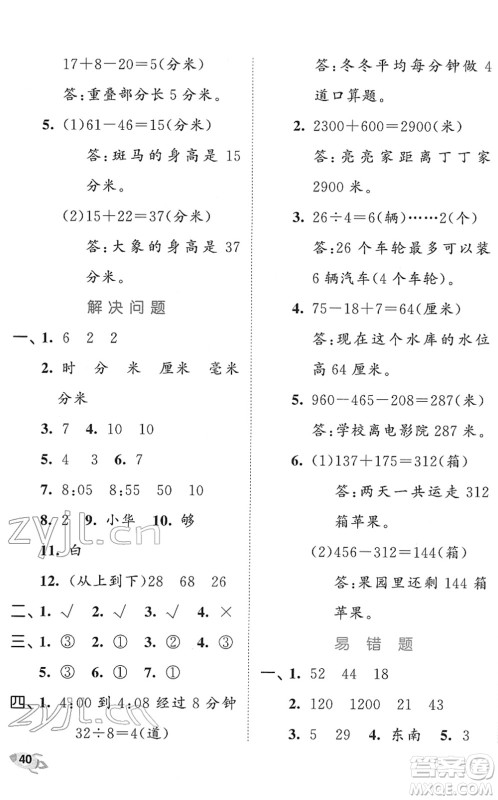 17+8-20=5(分米)
答:重叠部分长 5 分米。
5. (1)61-46=15(分米)
答:斑马的身高是 15
分米。
(2)15+22=37(分米)
答:大象的身高是 37
分米。
解决问题
一、1. 6 2 2
2. 时 分 米 厘米 毫米
分米
3. 7 4. 10 10
5. 4 3 6. 7
7. 8:05 8:55 50 10
8. 2 9. 小华 10. 够
11. 白
12. (从上到下)28 68 26
二、1. √ 2. √ 3. √ 4. ×
三、1. ③ 2. ① 3. ② 4. ③
5. ③ 6. ① 7. ① 8. ①
四、1. 4:00 到 4:08 经过 8 分钟
32÷8=4(道)
40
答:冬冬平均每分钟做 4
道口算题。
2. 2300+600=2900(米)
答:亮亮家距离丁丁家
2900 米。
3. 26÷4=6(辆)……2(个)
答:26 个车轮最多可以装
6 辆汽车(每辆 4 个)。
4. 75-18+7=64(米)
答:现在这个水库的水位
高 64 米。
5. 960-465-208=287(米)
答:学校离电影院 287 米。
6. (1)137+175=312(箱)
答:两天一共运走 312
箱苹果。
(2)456-312=144(箱)
答:果园里还剩 144 箱
苹果。
易错题
一、1. 52 44 18
2. 120 1200 21 48
3. 5 29 4. 东南 5. 3
zyjl.cn
zyjl.cn